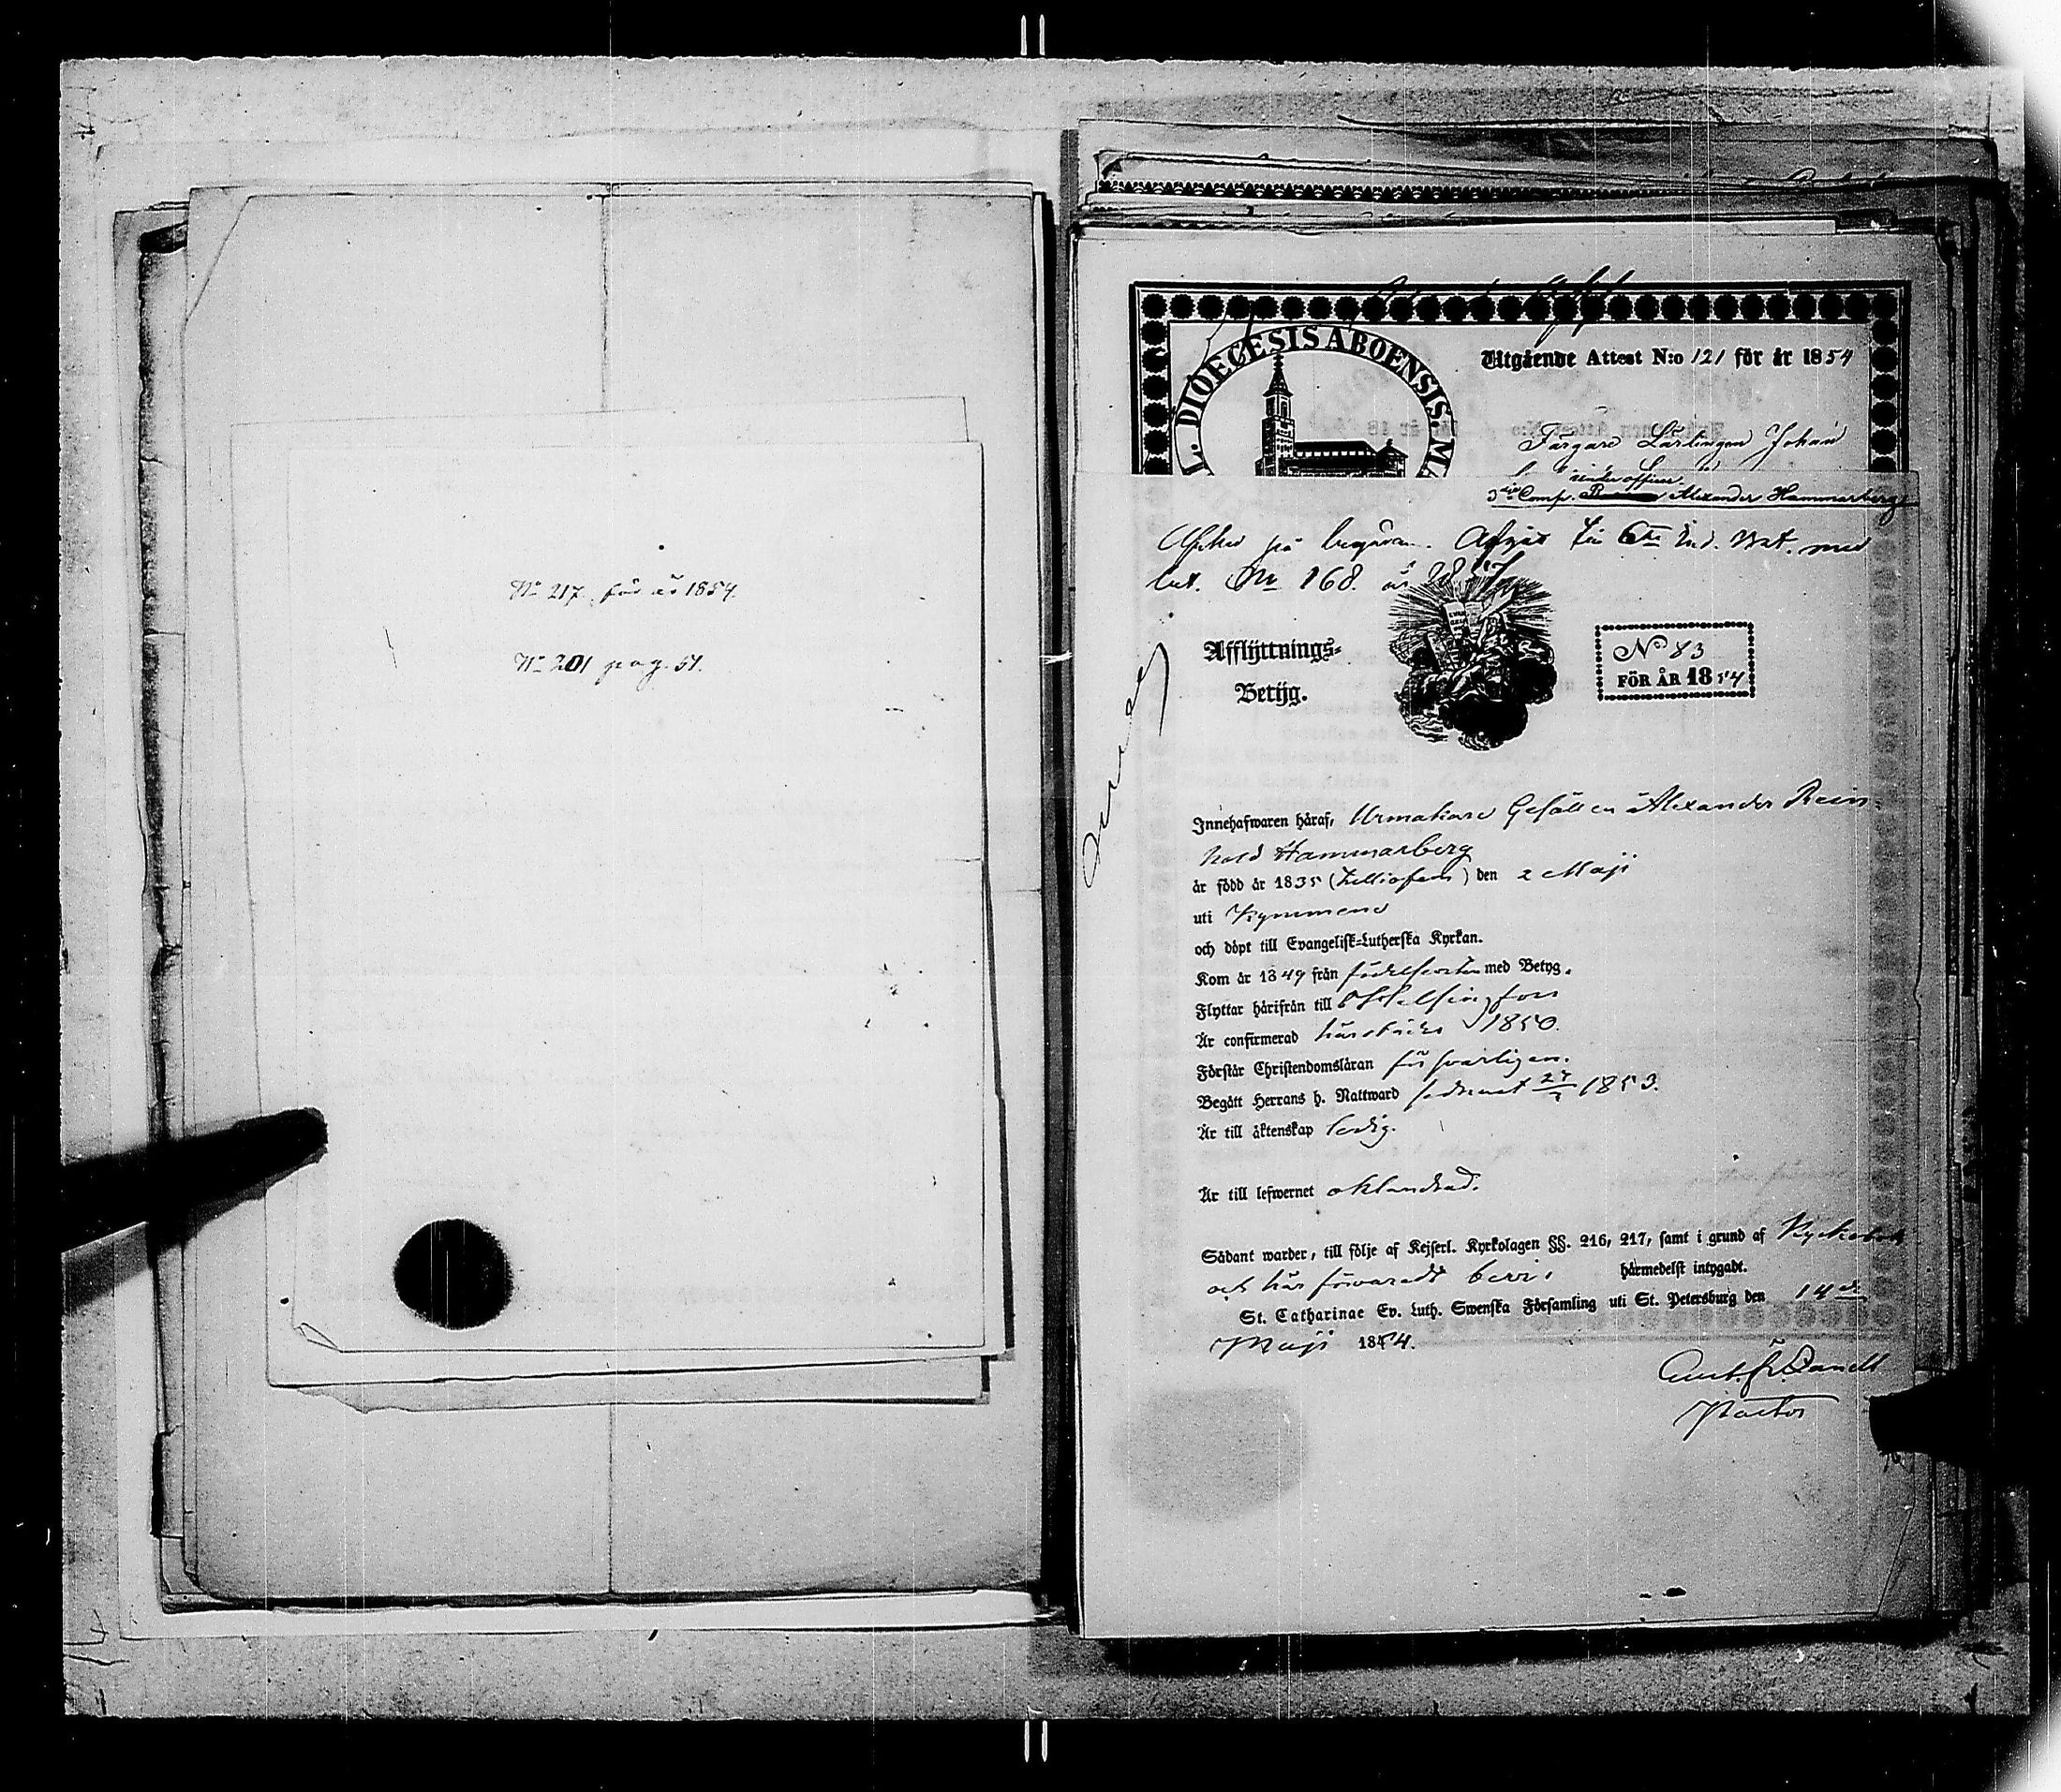 No 217 för år 1854.
No 201 pag. 51.
L. DIOECESIS ABOENSIS. MA
Utgående Attest N:o 121 för år 1854
Färgare Lärlingen Johan
underofficer
3die Comp. Alexander Hammarberg
på begäran. till 6te Ind. Bat. med
No 168. år
Afflyttnings-
Betyg.
No 83
FÖR ÅR 1854
Innehafwaren häraf, Urmakare Gesällen Alexander Rein-
hold Hammarberg
är född år 1835 ( ) den 2 Maji
uti Kymmene
och döpt till Evangelisk-Lutherska Kyrkan.
Kom år 1849 från födelseorten med Betyg.
Flyttar härifrån till Helsingfors
Är confirmerad härstädes 1850.
Förstår Christendomsläran försvarligen.
Begått Herrans h. Nattward sednast 27 1853.
Är till äktenskap ledig.
Är till lefwernet oklandrad.
Sådant warder, till följe af Kejserl. Kyrkolagen §§. 216, 217, samt i grund af Kyrkobok
och här förvaradt bevis härmedelst intygadt.
St. Catharinae Ev. Luth. Swenska Församling uti St. Petersburg den 14de
Maji 1854.
Pastor